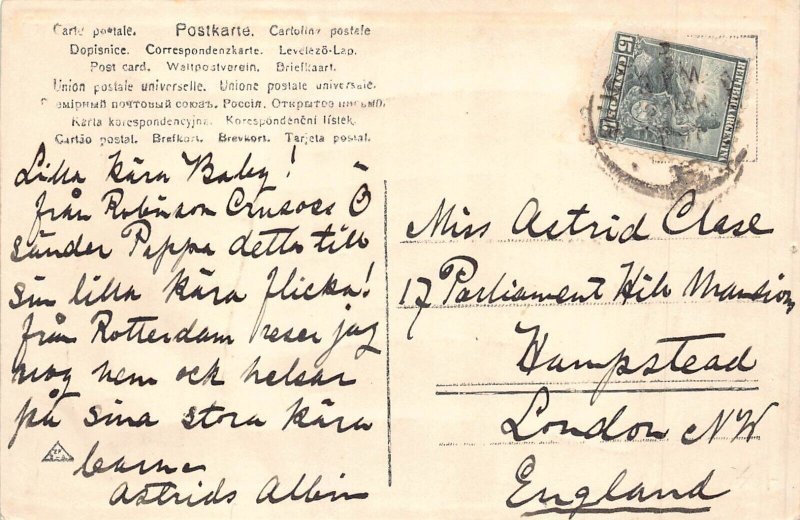 Carte postale. Postkarte. Cartolina postale
Dopisnice. Correspondenzkarte. Levelező-Lap.
Post card. Weltpostverein. Briefkaart.
Union postale universelle. Unione postale universale.
Всемірный почтовый союзъ. Россія. Открытое письмо.
Karta korespondencyjna. Korespondenční lístek.
Cartão postal. Brefkort. Brevkort. Tarjeta postal.
15
Lilla kära Baby!
från Robinson Crusoes Ö
sänder Pappa detta till
sin lilla kära flicka!
från Rotterdam reser jag
nog hem och helsar
på sina stora kära
barn
Astrids Albin
Miss Astrid Clase
17 Parliament Hill Mansions
Hampstead
London NW
England